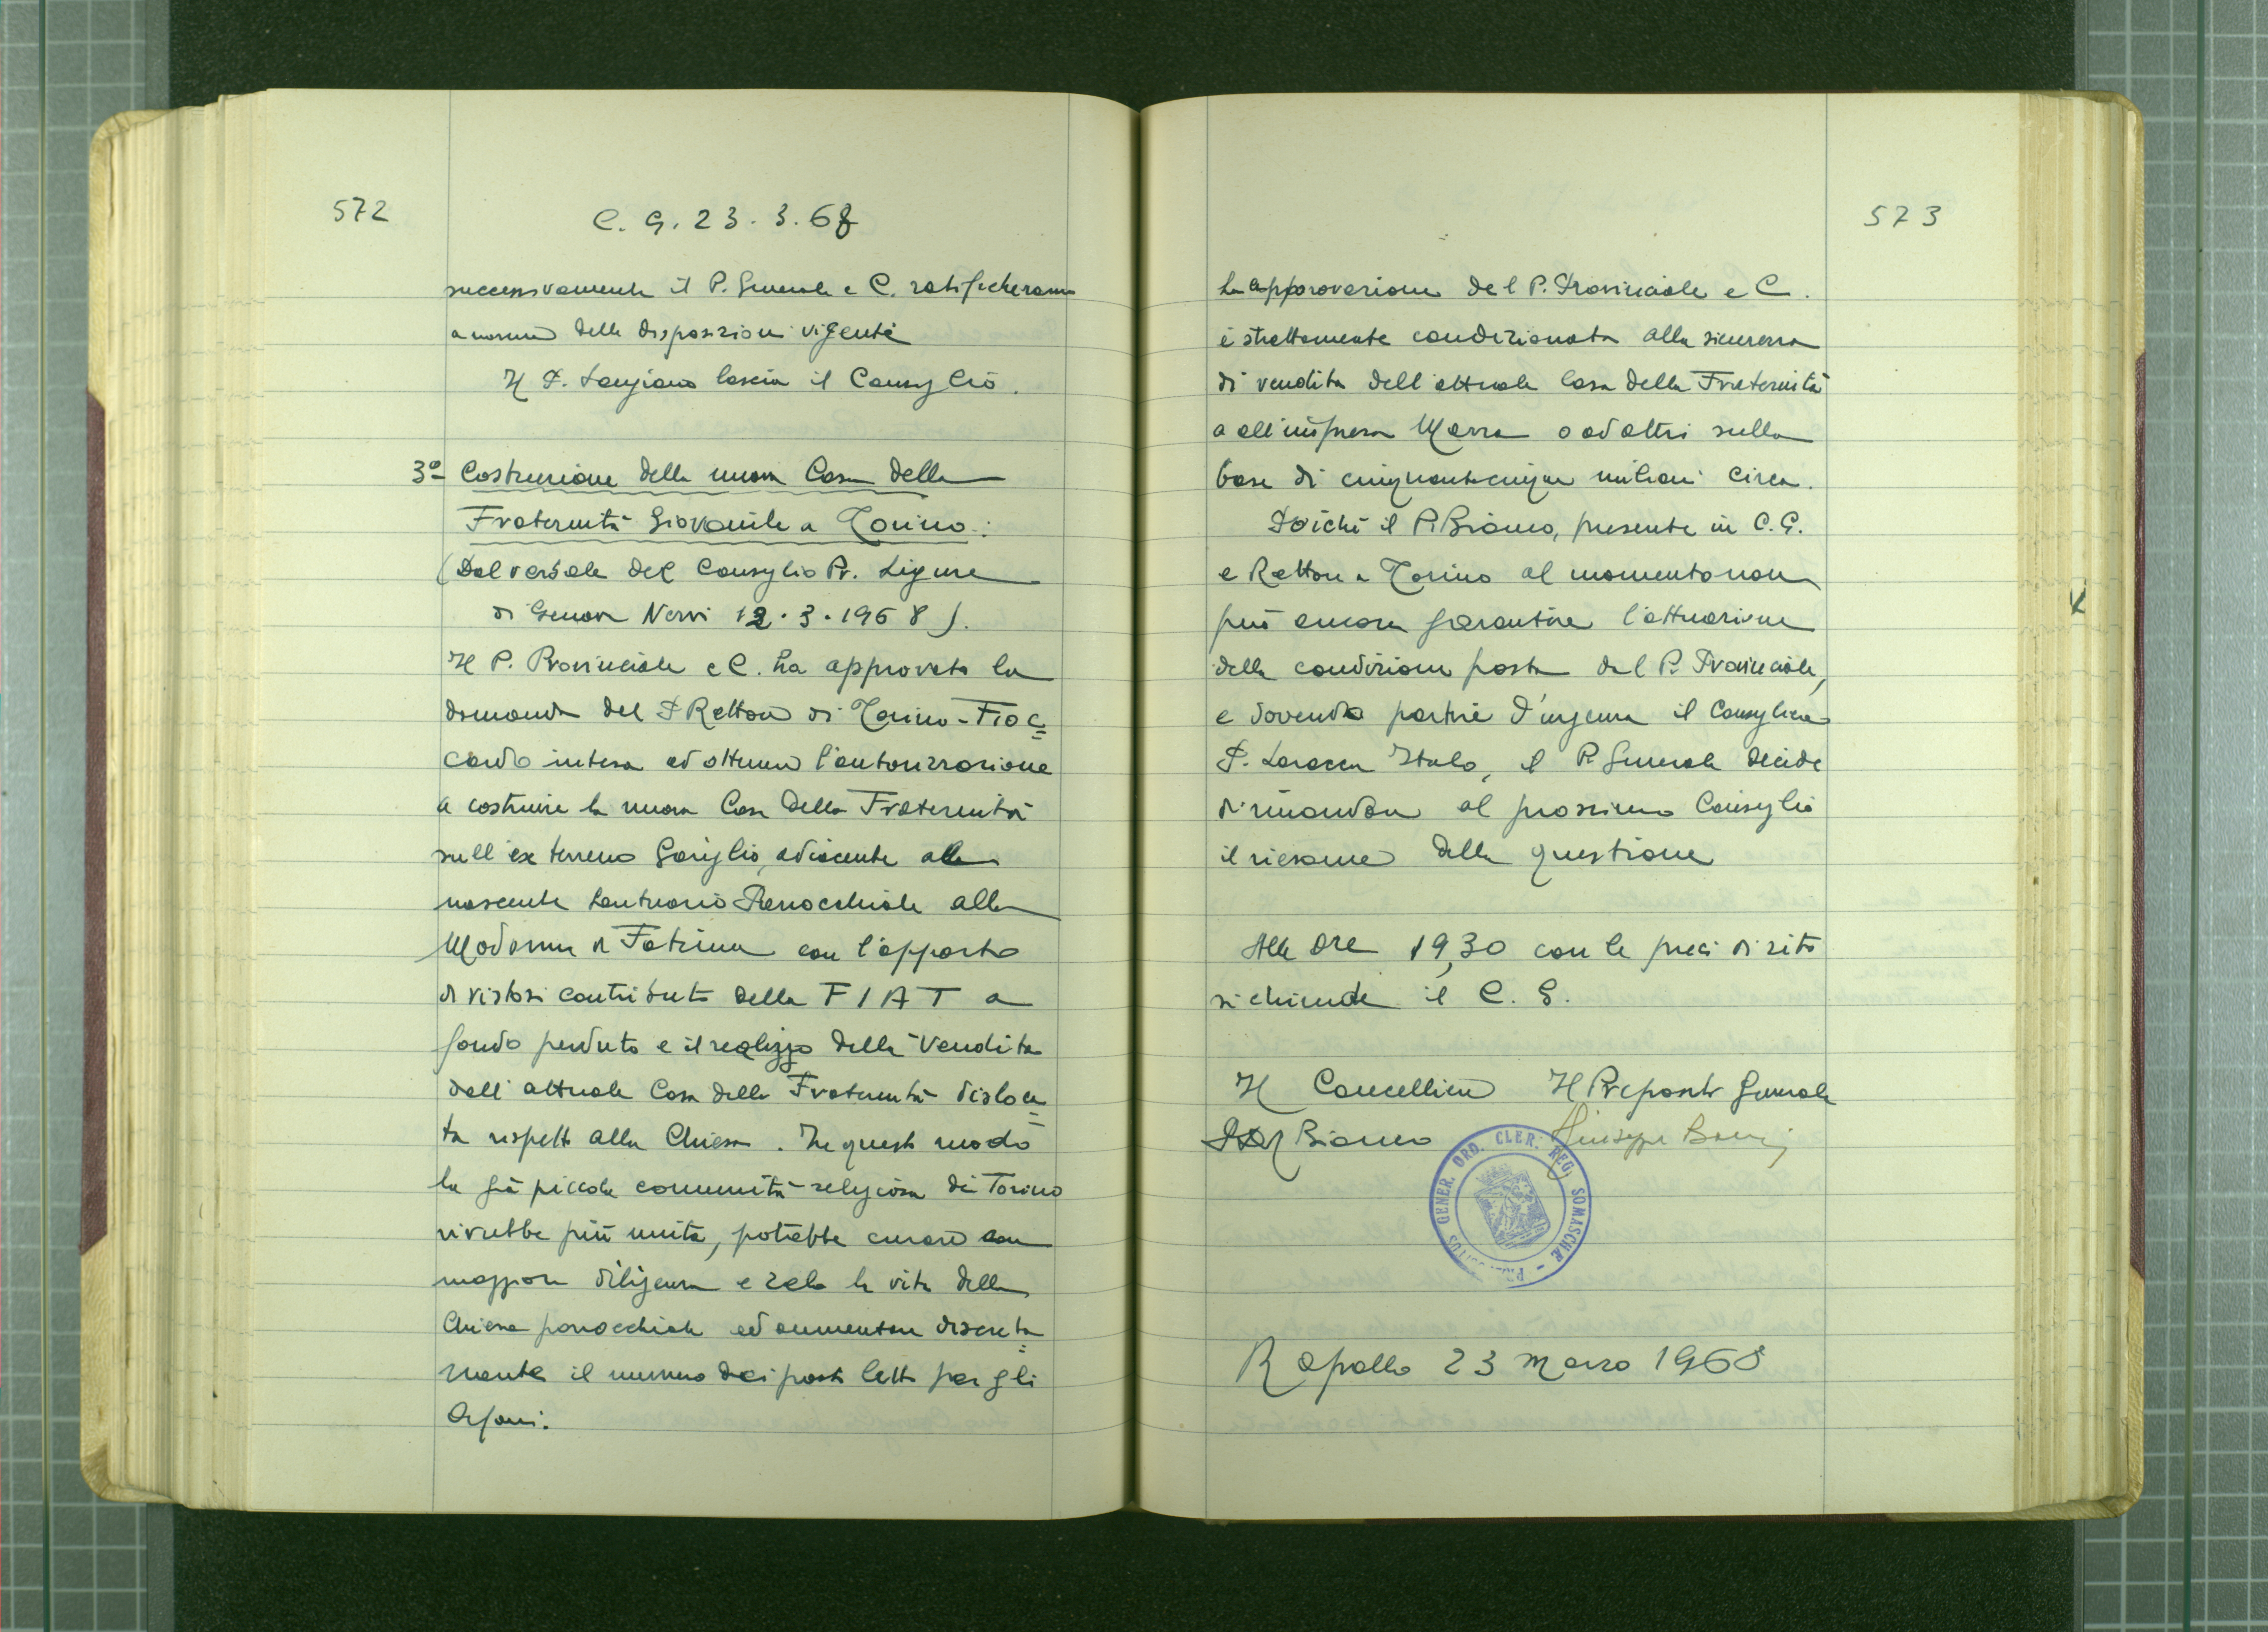 572
C. G. 23. 3. 68
successivamente il P. Generale e C. ratificheranno
a norma delle disposizioni vigenti
Il P. Laugiaro lascia il Consiglio.
3° Costruzione della nuova Casa della
Fraternità Giovanile a Torino:
(Dal verbale del Consiglio Pr. Ligure
di Genova Nervi 12.3.1968).
Il P. Provinciale e C. ha approvato la
domanda del P. Rettore di Torino-Fioc=
cardo intesa ad ottenere l'autorizzazione
a costruire la nuova Casa della Fraternità
sull'ex terreno Gariglio, adiacente alla
nascente Santuario Parrocchiale alla
Madonna di Fatima con l'apporto
di vistosi contributi della FIAT a
fondo perduto e il realizzo della vendita
dell'attuale Casa della Fraternità disloca=
ta rispetto alla Chiesa. In questo modo
la già piccola comunità religiosa di Torino
vivrebbe più unita, potrebbe curare con
maggiore diligenza e zelo la vita della
Chiesa parrocchiale ed aumentare discreta=
mente il numero dei posti letto per gli
Orfani.
573
La approvazione del P. Provinciale e C.
è strettamente condizionata alla sicurezza
di vendita dell'attuale Casa della Fraternità
o all'impresa Marra o ad altri sulla
base di cinquantacinque milioni circa.
Poiché il P. Bianco, presente in C. G.
e Rettore a Torino al momento non
può ancora garantire l'attuazione
della condizione posta dal P. Provinciale,
e dovendo partire d'urgenza il Consigliere
P. Laracca Italo, il P. Generale decide
di rimandare al prossimo Consiglio
il riesame della questione
Alle ore 19,30 con le preci di rito
si chiude il C. G.
Il Cancelliere Il Preposito Generale
Bianco Giuseppe
PRAEPOSITUS GENER. ORD. CLER. REG. SOMASCHAE
Rapallo 23 Marzo 1968